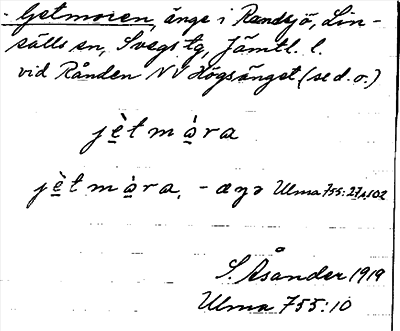 Getmoren, änge i Randsjö, Lin-
sälls sn, Svegs tg, Jämtl. l.
vid Rånden NV Högsänget (se d. o.)
jè̱tmo̱ra
jè̱tmò̱ra, -æŋə Ulma 755:27 s. 102
S. Åsander 1919
Ulma 755:10